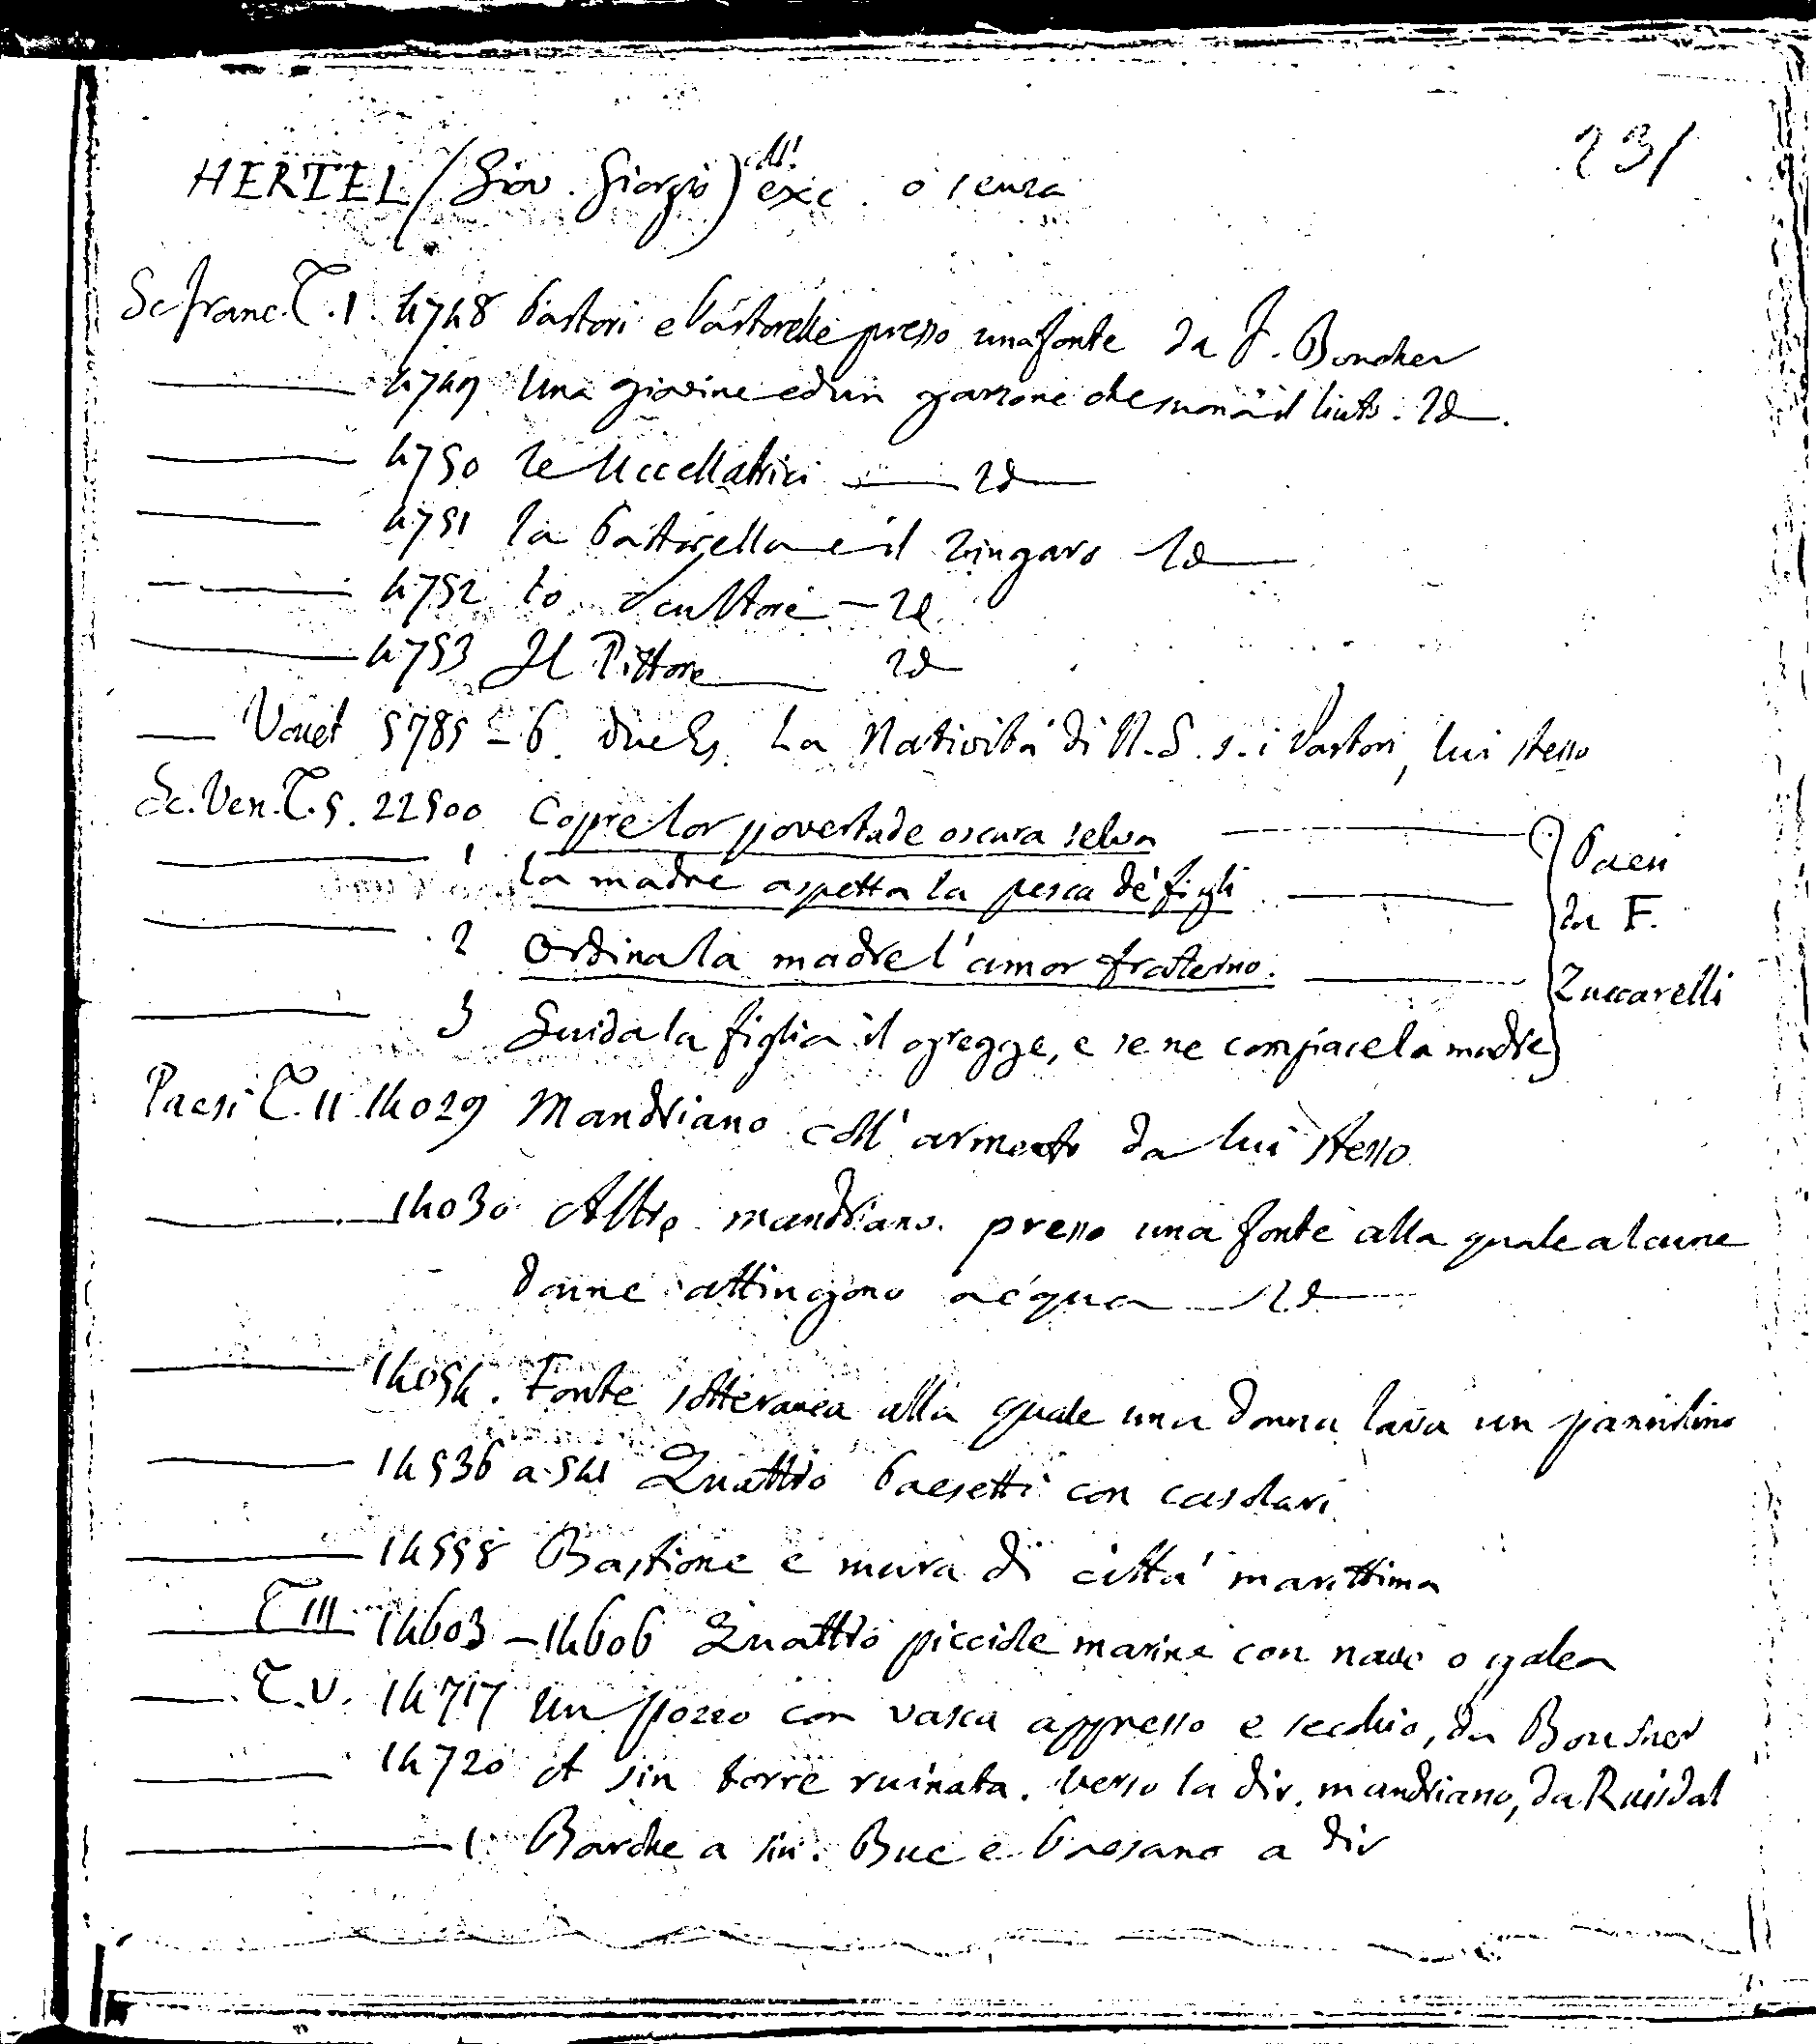 231
HERTEL (Giov. Giorgio) coll' exc. o senza
Sc franc. T. 1. 4748 Pastori e Pastorelle presso una fonte da F. Boucher
4749 Una giovine ed un garzone che suona il liuto. Id.
4750 Le Uccellatrici Id
4751 La Pastorella e il Zingaro Id
4752 Lo Scultore - Id
4753 Il Pittore Id
Vouet 5785 - 6. due Es. La Natività di N. S. s. i Pastori, lui stesso
Sc. Ven. T. 5. 22500 Copre lor povertade oscura selva
1 La madre aspetta la pesca de' figli
2 Ordina la madre l'amor fraterno.
3 Guida la figlia il gregge, e se ne compiace la madre
} Paesi
da F.
Zuccarelli
Paesi T. II. 14029 Mandriano coll' armento da lui stesso
14030 Altro mandriano presso una fonte alla quale alcune
donne attingono acqua Id
14054. Fonte sotteranea alla quale una donna lava un pannolino
14536 a 541 Quattro Paesetti con casolari
14558 Bastione e mura di città marittima
T III 14603 - 14606 Quattro picciole marine con nave o galea
T. V. 14717 Un pozzo con vasca appresso e secchio, da
14720 A sin torre ruinata. Verso la dir. mandriano, da Ruisdal
1 Barche a sin. Bue e Paesano a dir